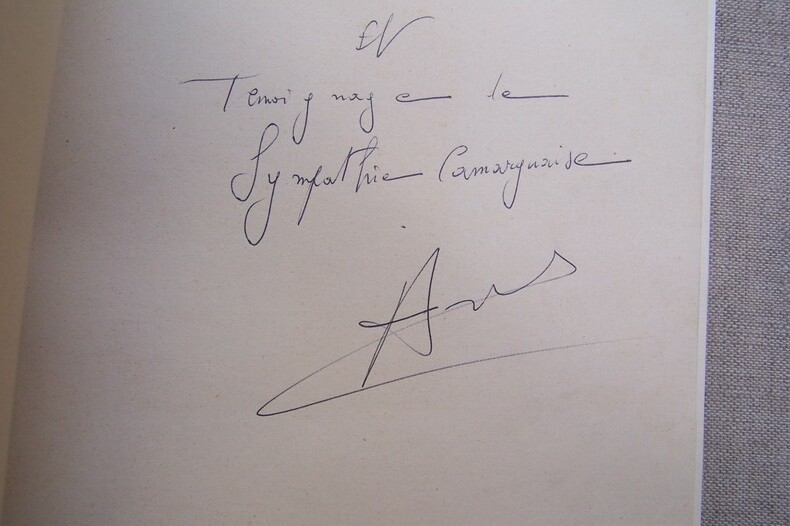 EN
Temoignage de
Sympathie Camarguaise